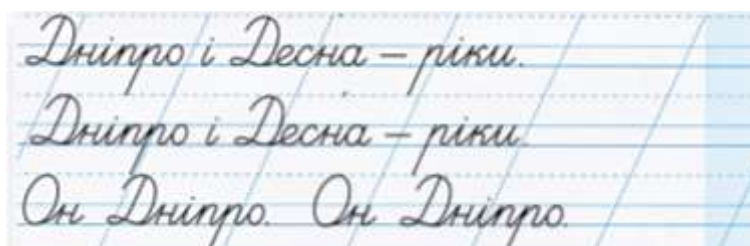 Дніпро і Десна – ріки.
Дніпро і Десна – ріки.
Он Дніпро. Он Дніпро.